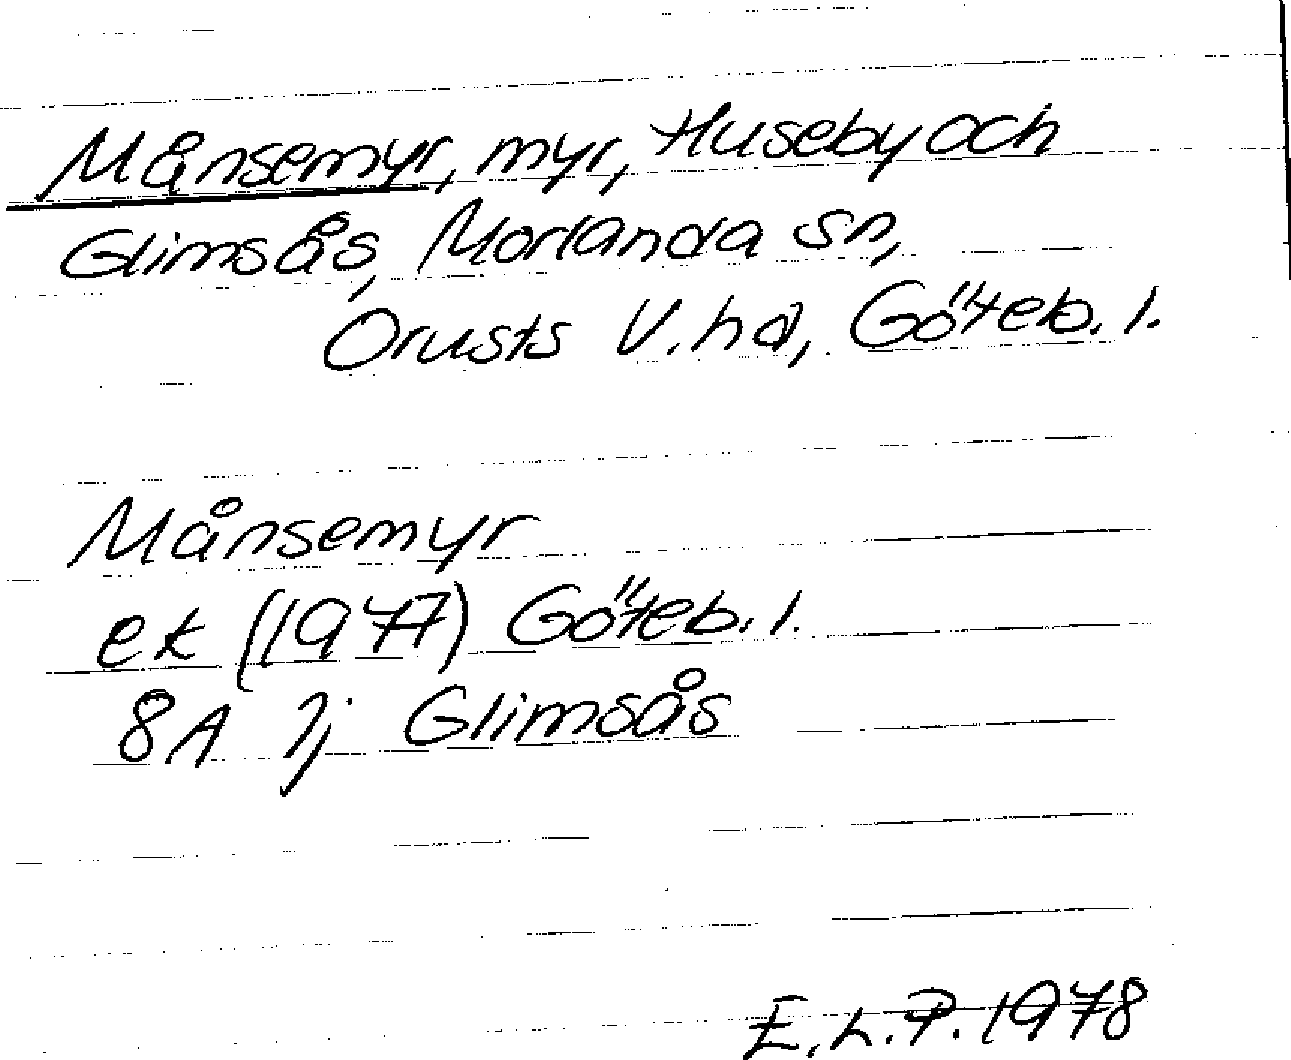 Månsemyr, myr, Huseby och
Glimsås, Morlanda sn,
Orusts V. hd, Göteb. l.
Månsemyr
ek (1977) Göteb. l.
8A 7j Glimsås
E.L.P. 1978